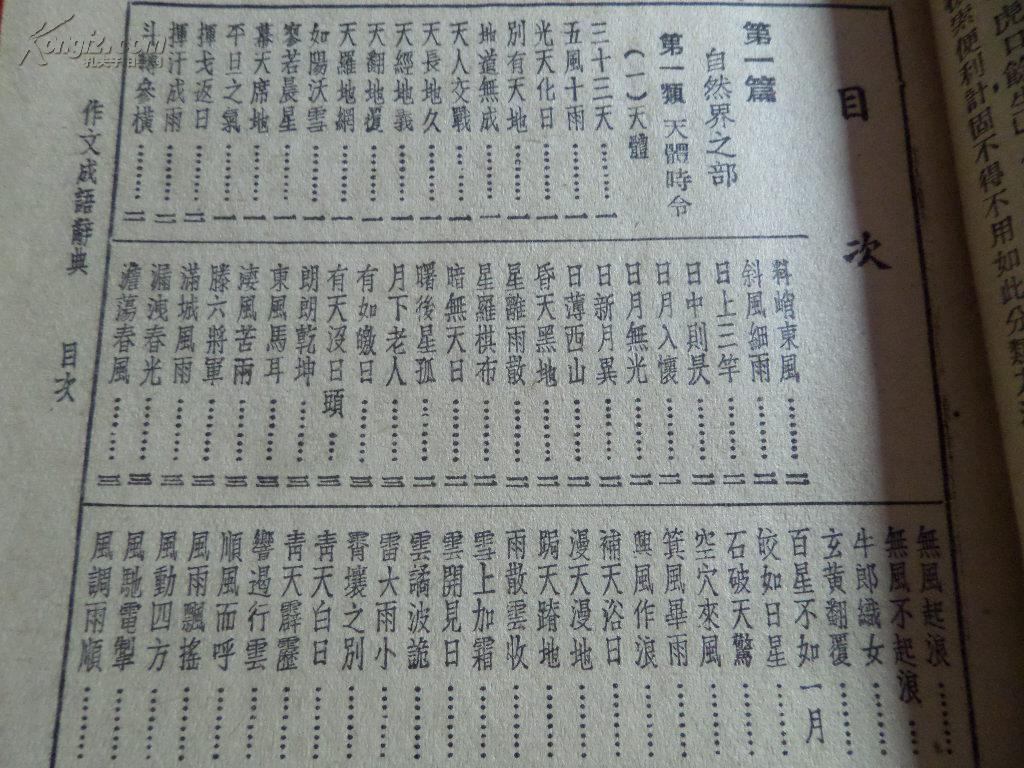 目次
第一篇
自然界之部
第一類 天體時令
(一)天體
三十三天………一
五風十雨………一
光天化日………一
別有天地………一
地道無成………一
天人交戰………一
天長地久………一
天經地義………一
天翻地覆………一
天羅地網………一
如陽沃雪………一
寥若晨星………一
幕天席地………一
平旦之氣………一
揮戈返日………二
揮汗成雨………二
斗轉參橫………二
料峭東風………二
斜風細雨………二
日上三竿………二
日中則昃………二
日月入懷………二
日月無光………二
日新月異………二
日薄西山………二
昏天黑地………二
星離雨散………二
星羅棋布………二
暗無天日………二
曙後星孤………二
月下老人………三
有如皦日………三
有天沒日頭………三
朗朗乾坤………三
東風馬耳………三
淒風苦雨………三
滕六將軍………三
滿城風雨………三
漏洩春光………三
澹蕩春風………三
無風起浪………
無風不起浪………
牛郎織女………
玄黃翻覆………
百星不如一月………
皎如日星………
石破天驚………
空穴來風………
箕風畢雨………
興風作浪………
補天浴日………
漫天漫地………
跼天蹐地………
雨散雲收………
雪上加霜………
雲開見日………
雲譎波詭………
雷大雨小………
霄壤之別………
青天白日………
青天霹靂………
響遏行雲………
順風而呼………
風雨飄搖………
風動四方………
風馳電掣………
風調雨順………
作文成語辭典 目次
便利計固不得不用如此分類
Kongfz.com
孔夫子旧书网